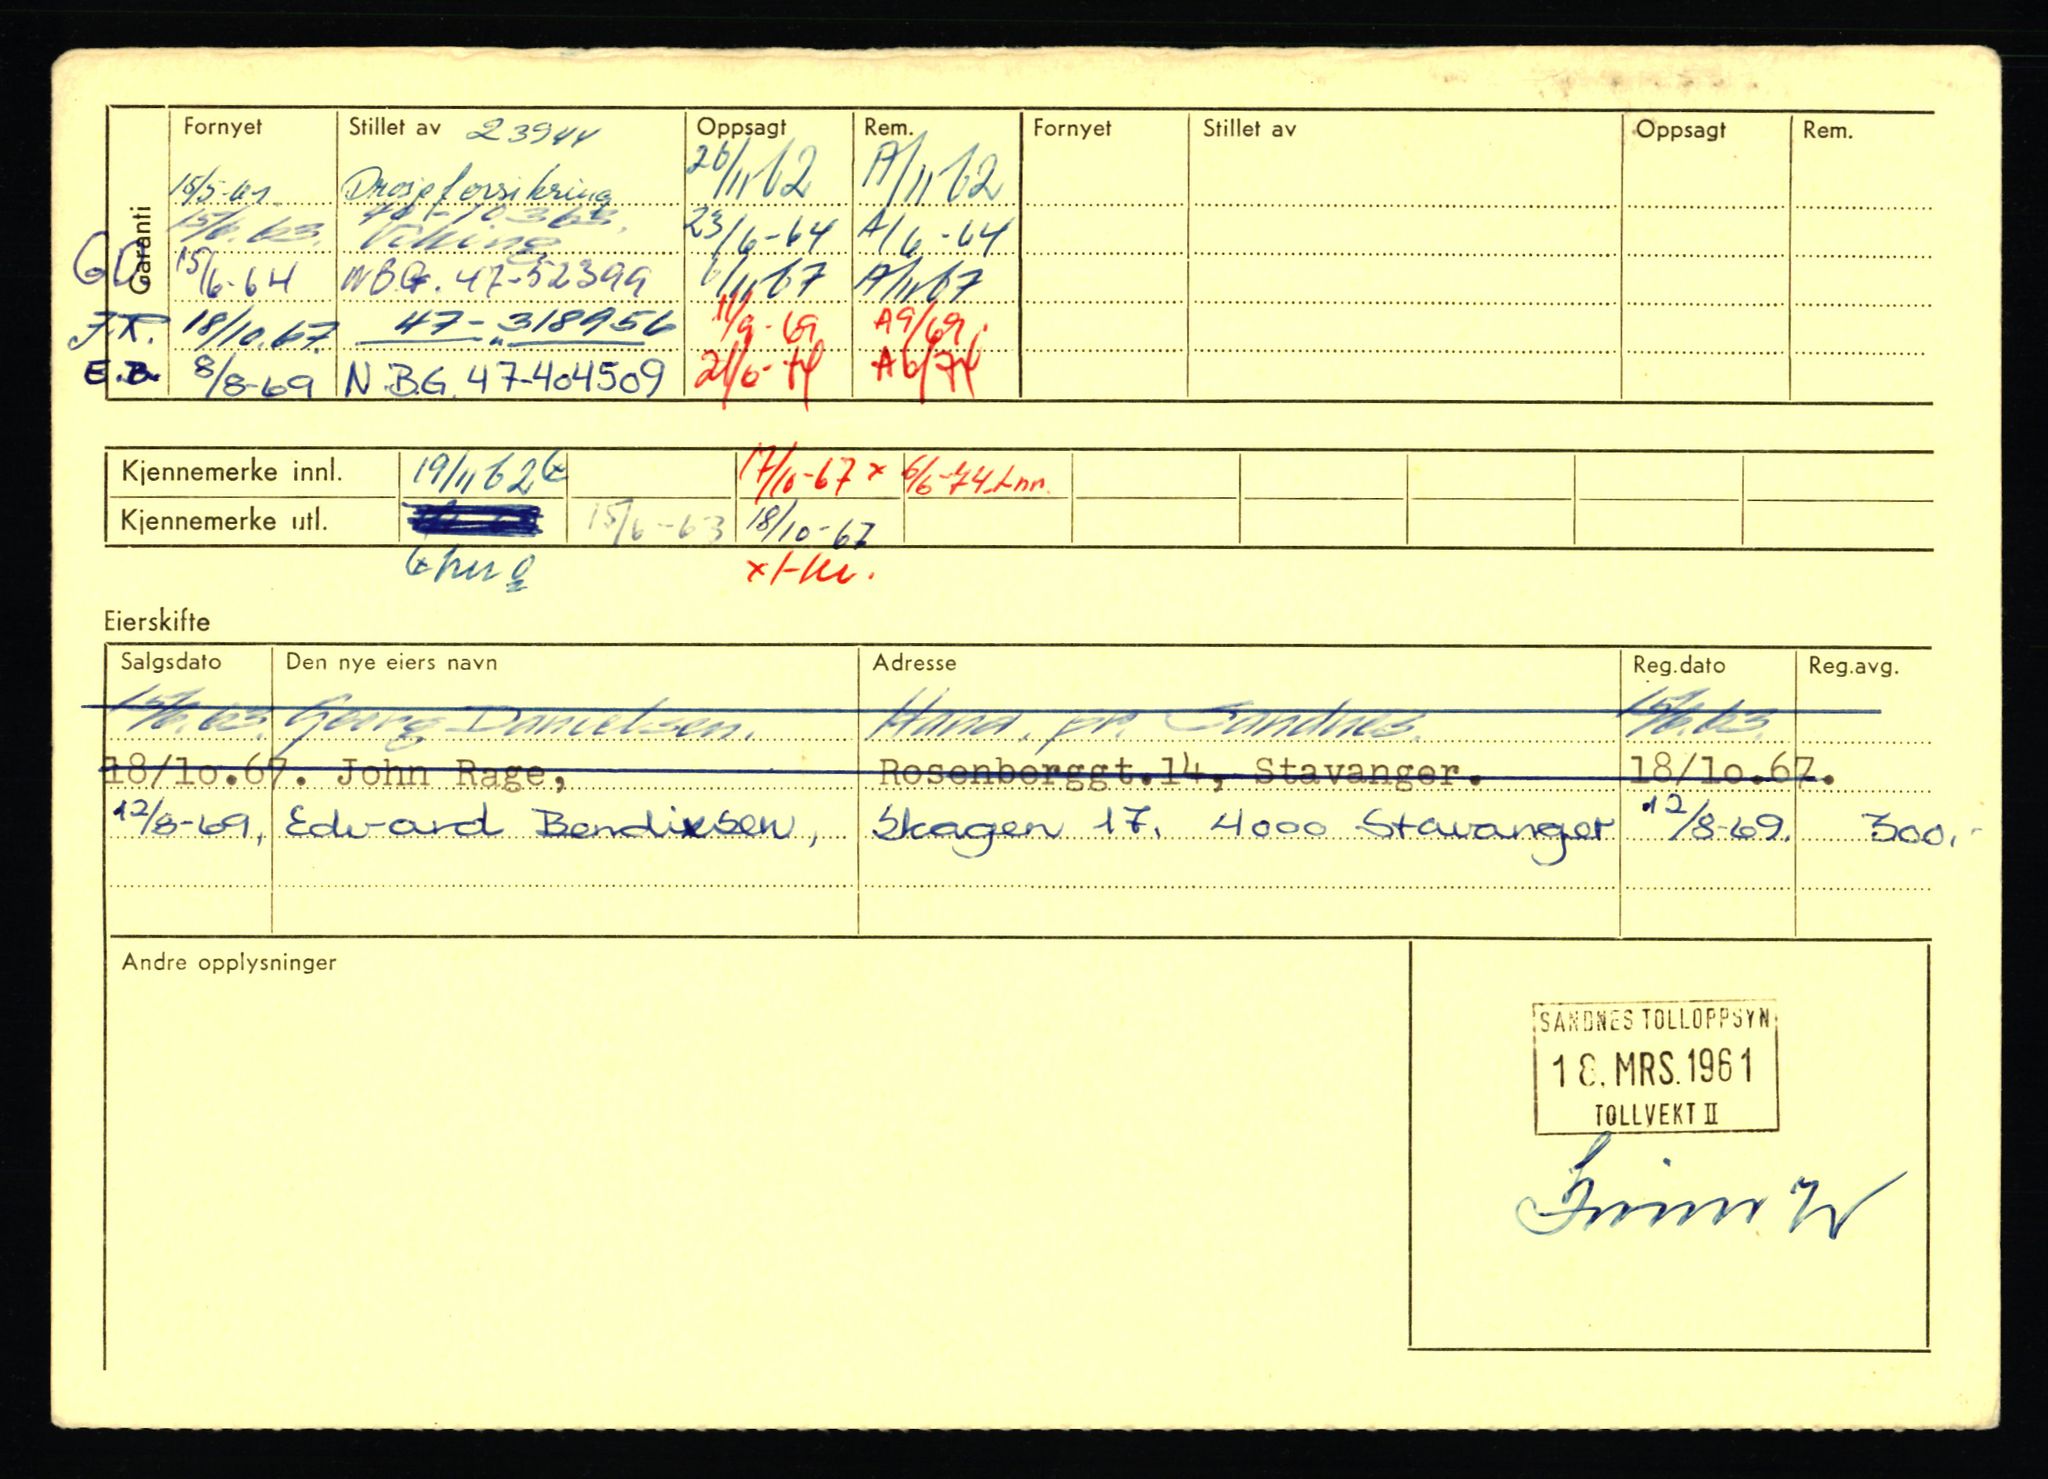 Garanti
Fornyet Stillet av 23944 Oppsagt Rem. Fornyet Stillet av Oppsagt Rem.
15/5-61. Drosjeforsikring 26/11 62 A/11 62
15/6.63. Viking 23/6-64 A/6-64
15/6-64 N.B.G. 47-52399 6/11 67 A/11 67
J.K. 18/10.67. 47-318956 11/9-69 A9/69.
E.B. 8/8-69 N.B.G. 47-404509 21/6-74 A6/74
Kjennemerke innl. 19/11 62 17/10-67 x 6/6-74
Kjennemerke utl. 15/6-63 18/10-67
Eierskifte
Salgsdato Den nye eiers navn Adresse Reg.dato Reg.avg.
15/6.63. Georg Danielsen. Hana. pr. Sandnes. 15/6.63.
18/10.67. John Rage, Rosenberggt.14, Stavanger. 18/10.67.
12/8-69, Edvard Bendixsen, Skagen 17. 4000 Stavanger 12/8-69. 300.-
Andre opplysninger
SANDNES TOLLOPPSYN
18. MRS. 1961
TOLLVEKT II